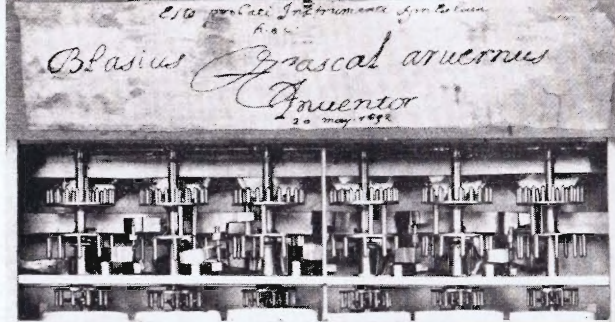 Esto probati Instrumenti Symbolum
hoc
Blasius Pascal aruernus
Inuentor
20 may 1652